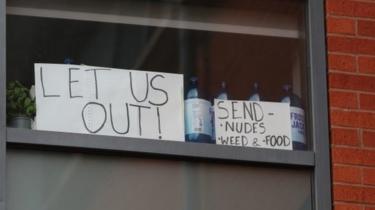 LET US
OUT!
SEND -
• NUDES
• WEED & • FOOD